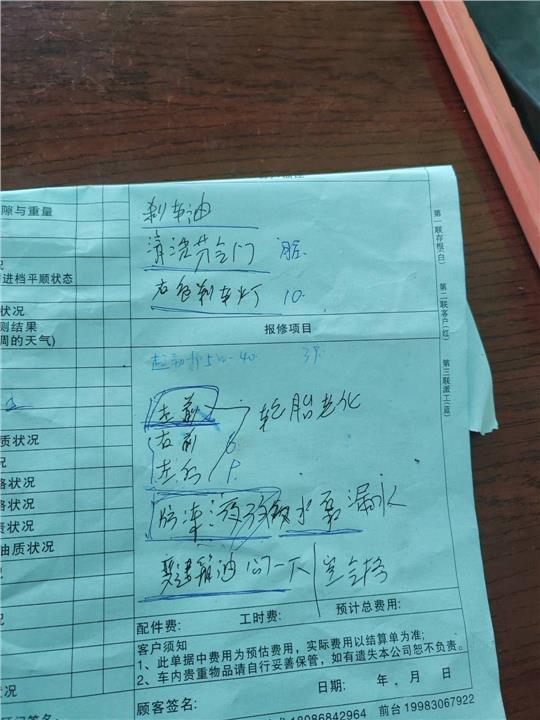 隙与重量
刹车油
清洗节气门 脏
进档平顺状态
右后刹车灯 10
状况
测结果
报修项目
调的天气)
5W-40
左前
轮胎老化
右前
质状况
左后
况
格状况
防冻液
水泵漏水
格状况
责状况
油质状况
况
空气格
配件费: 工时费: 预计总费用:
客户须知
1、此单据中费用为预估费用，实际费用以结算单为准;
2、车内贵重物品请自行妥善保管，如有遗失本公司恕不负责。
状况
日期: 年 月 日
顾客签名:
问签名:
18086842964 前台 19983067922
第一联存根(白)
第二联客户(红)
第三联派工(蓝)